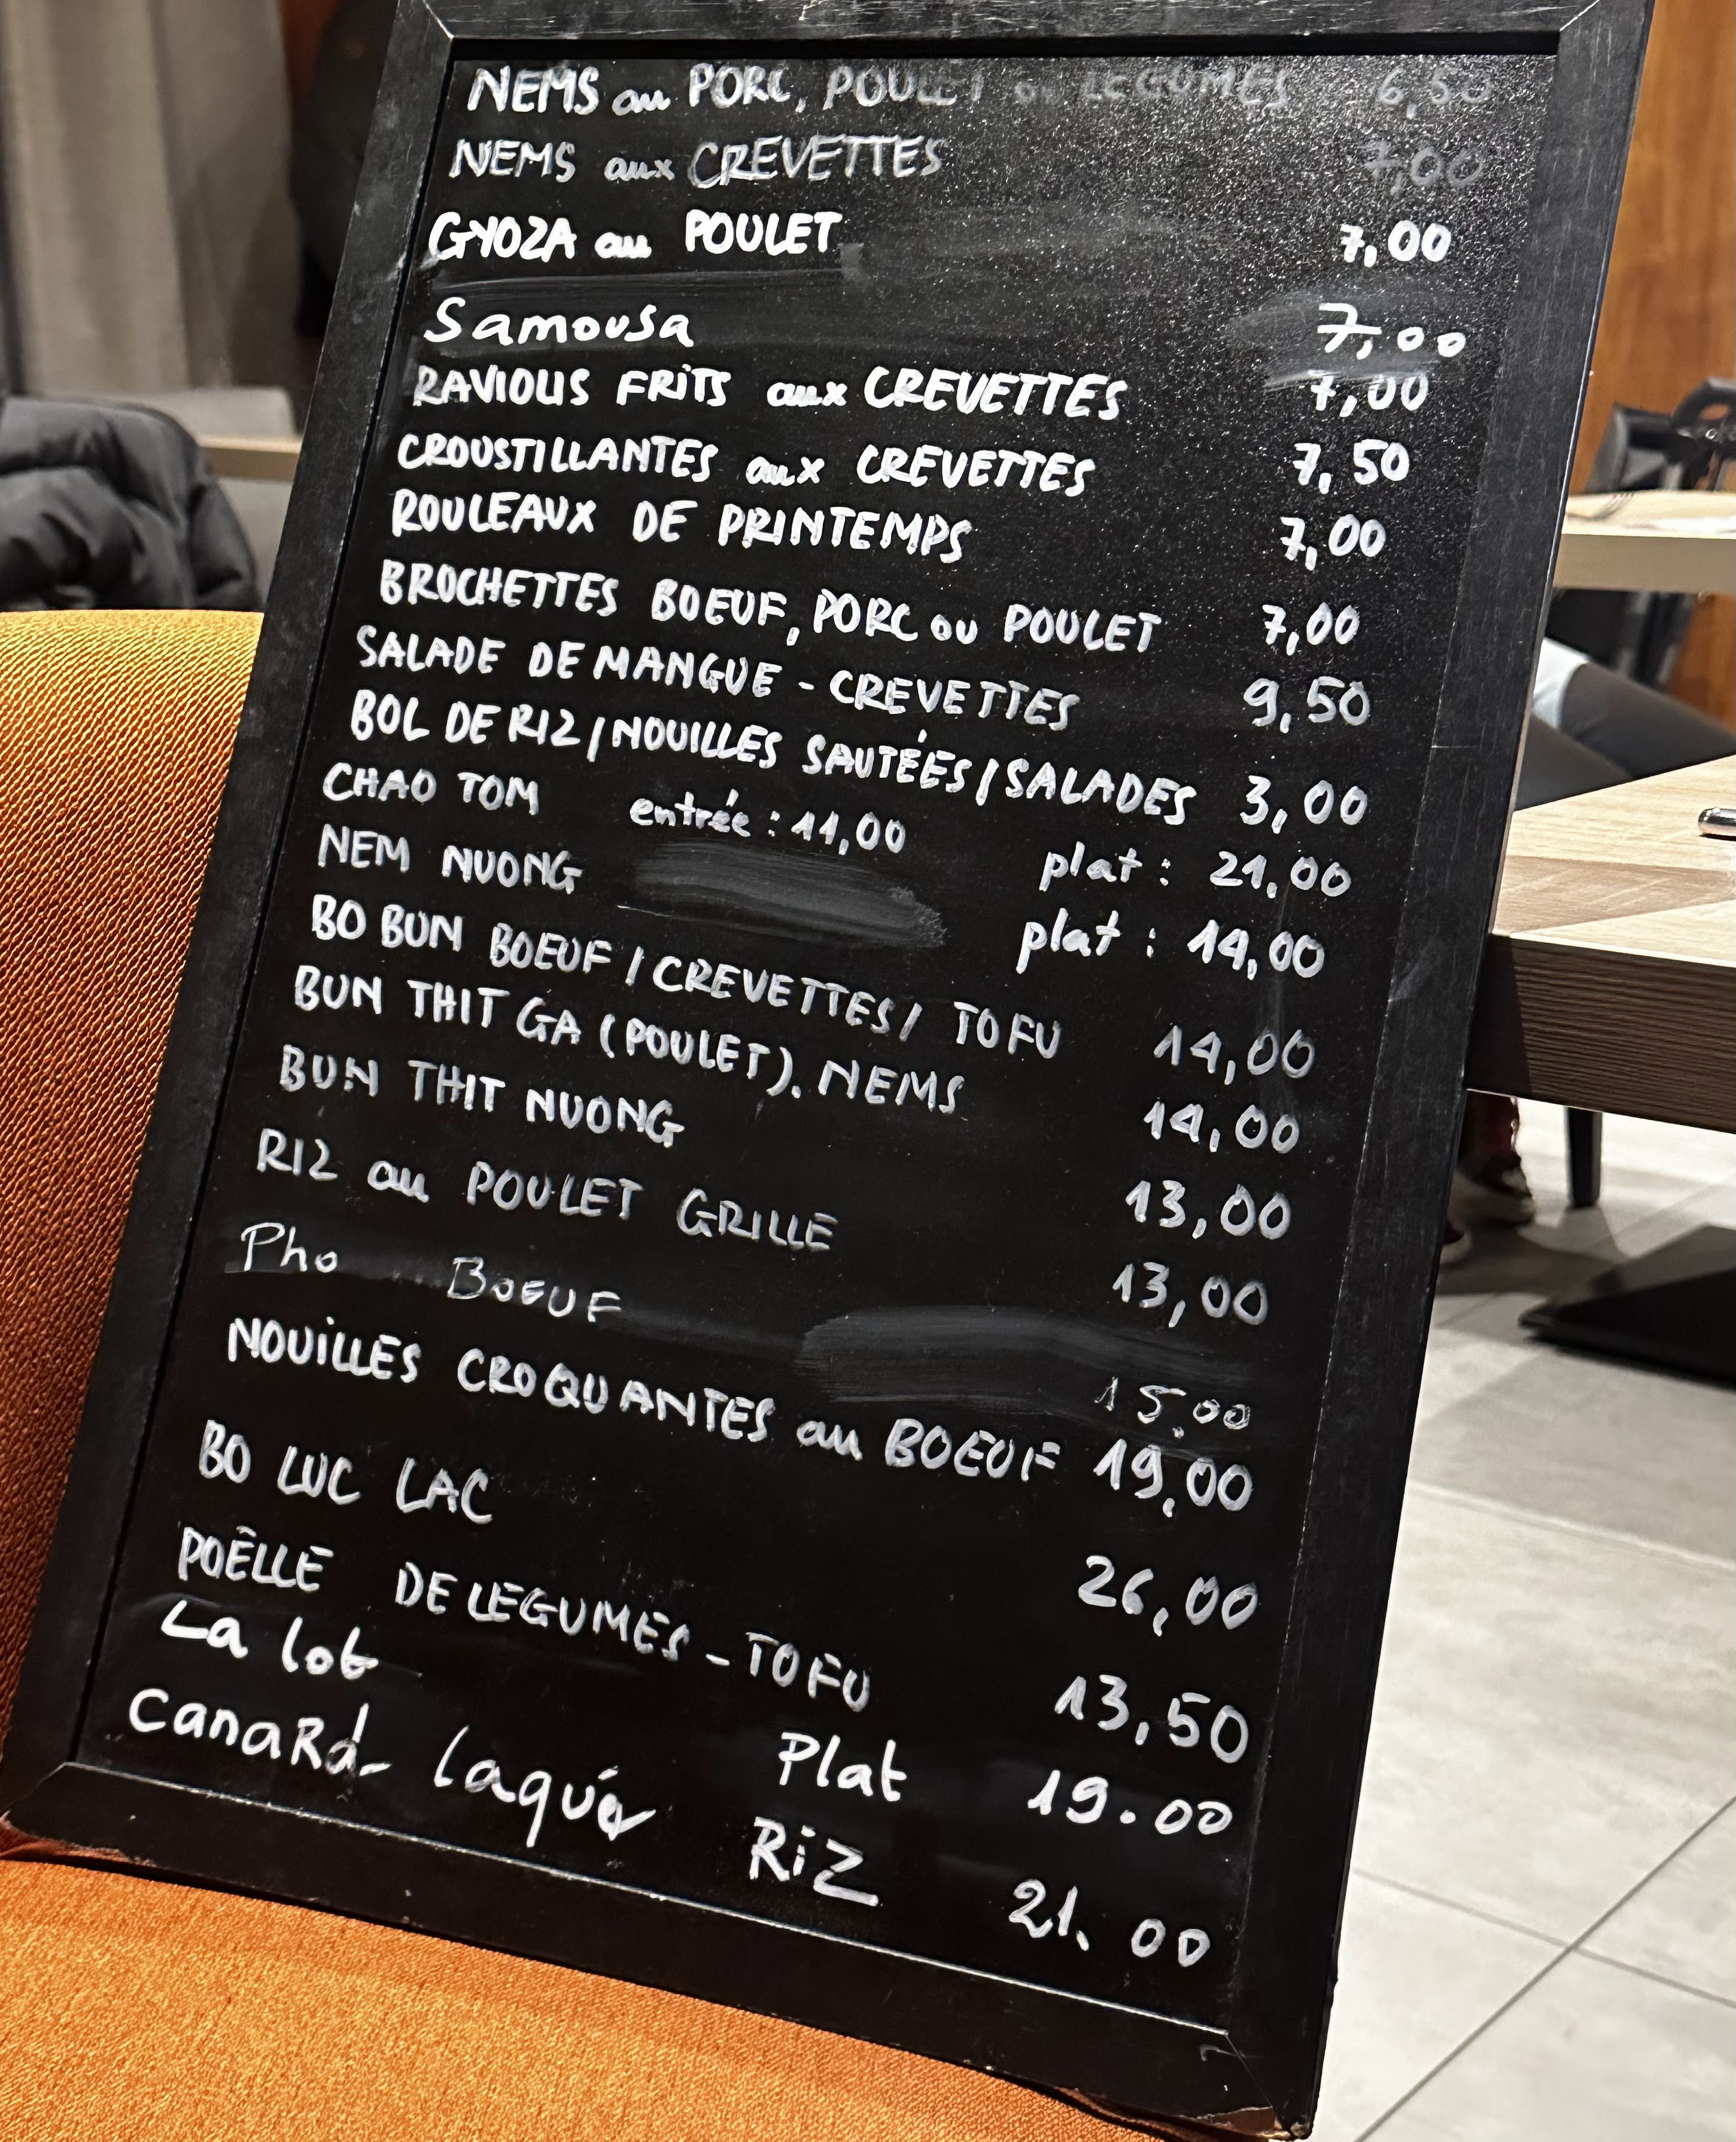 NEMS au PORC, POULET ou LEGUMES 6,50
NEMS aux CREVETTES 7,00
GYOZA au POULET 7,00
Samousa 7,00
RAVIOLIS FRITS aux CREVETTES 7,00
CROUSTILLANTES aux CREVETTES 7,50
ROULEAUX DE PRINTEMPS 7,00
BROCHETTES BOEUF, PORC ou POULET 7,00
SALADE DE MANGUE - CREVETTES 9,50
BOL DE RIZ / NOUILLES SAUTÉES / SALADES 3,00
CHAO TOM entrée : 11,00 plat : 21,00
NEM NUONG plat : 14,00
BO BUN BOEUF / CREVETTES / TOFU 14,00
BUN THIT GA (POULET). NEMS 14,00
BUN THIT NUONG 13,00
RIZ au POULET GRILLE 13,00
Pho BOEUF 15.00
NOUILLES CROQUANTES au BOEUF 19,00
BO LUC LAC 26,00
POÊLLE DE LEGUMES - TOFU 13,50
La lot Plat 19.00
CanaRd laqué RiZ 21.00